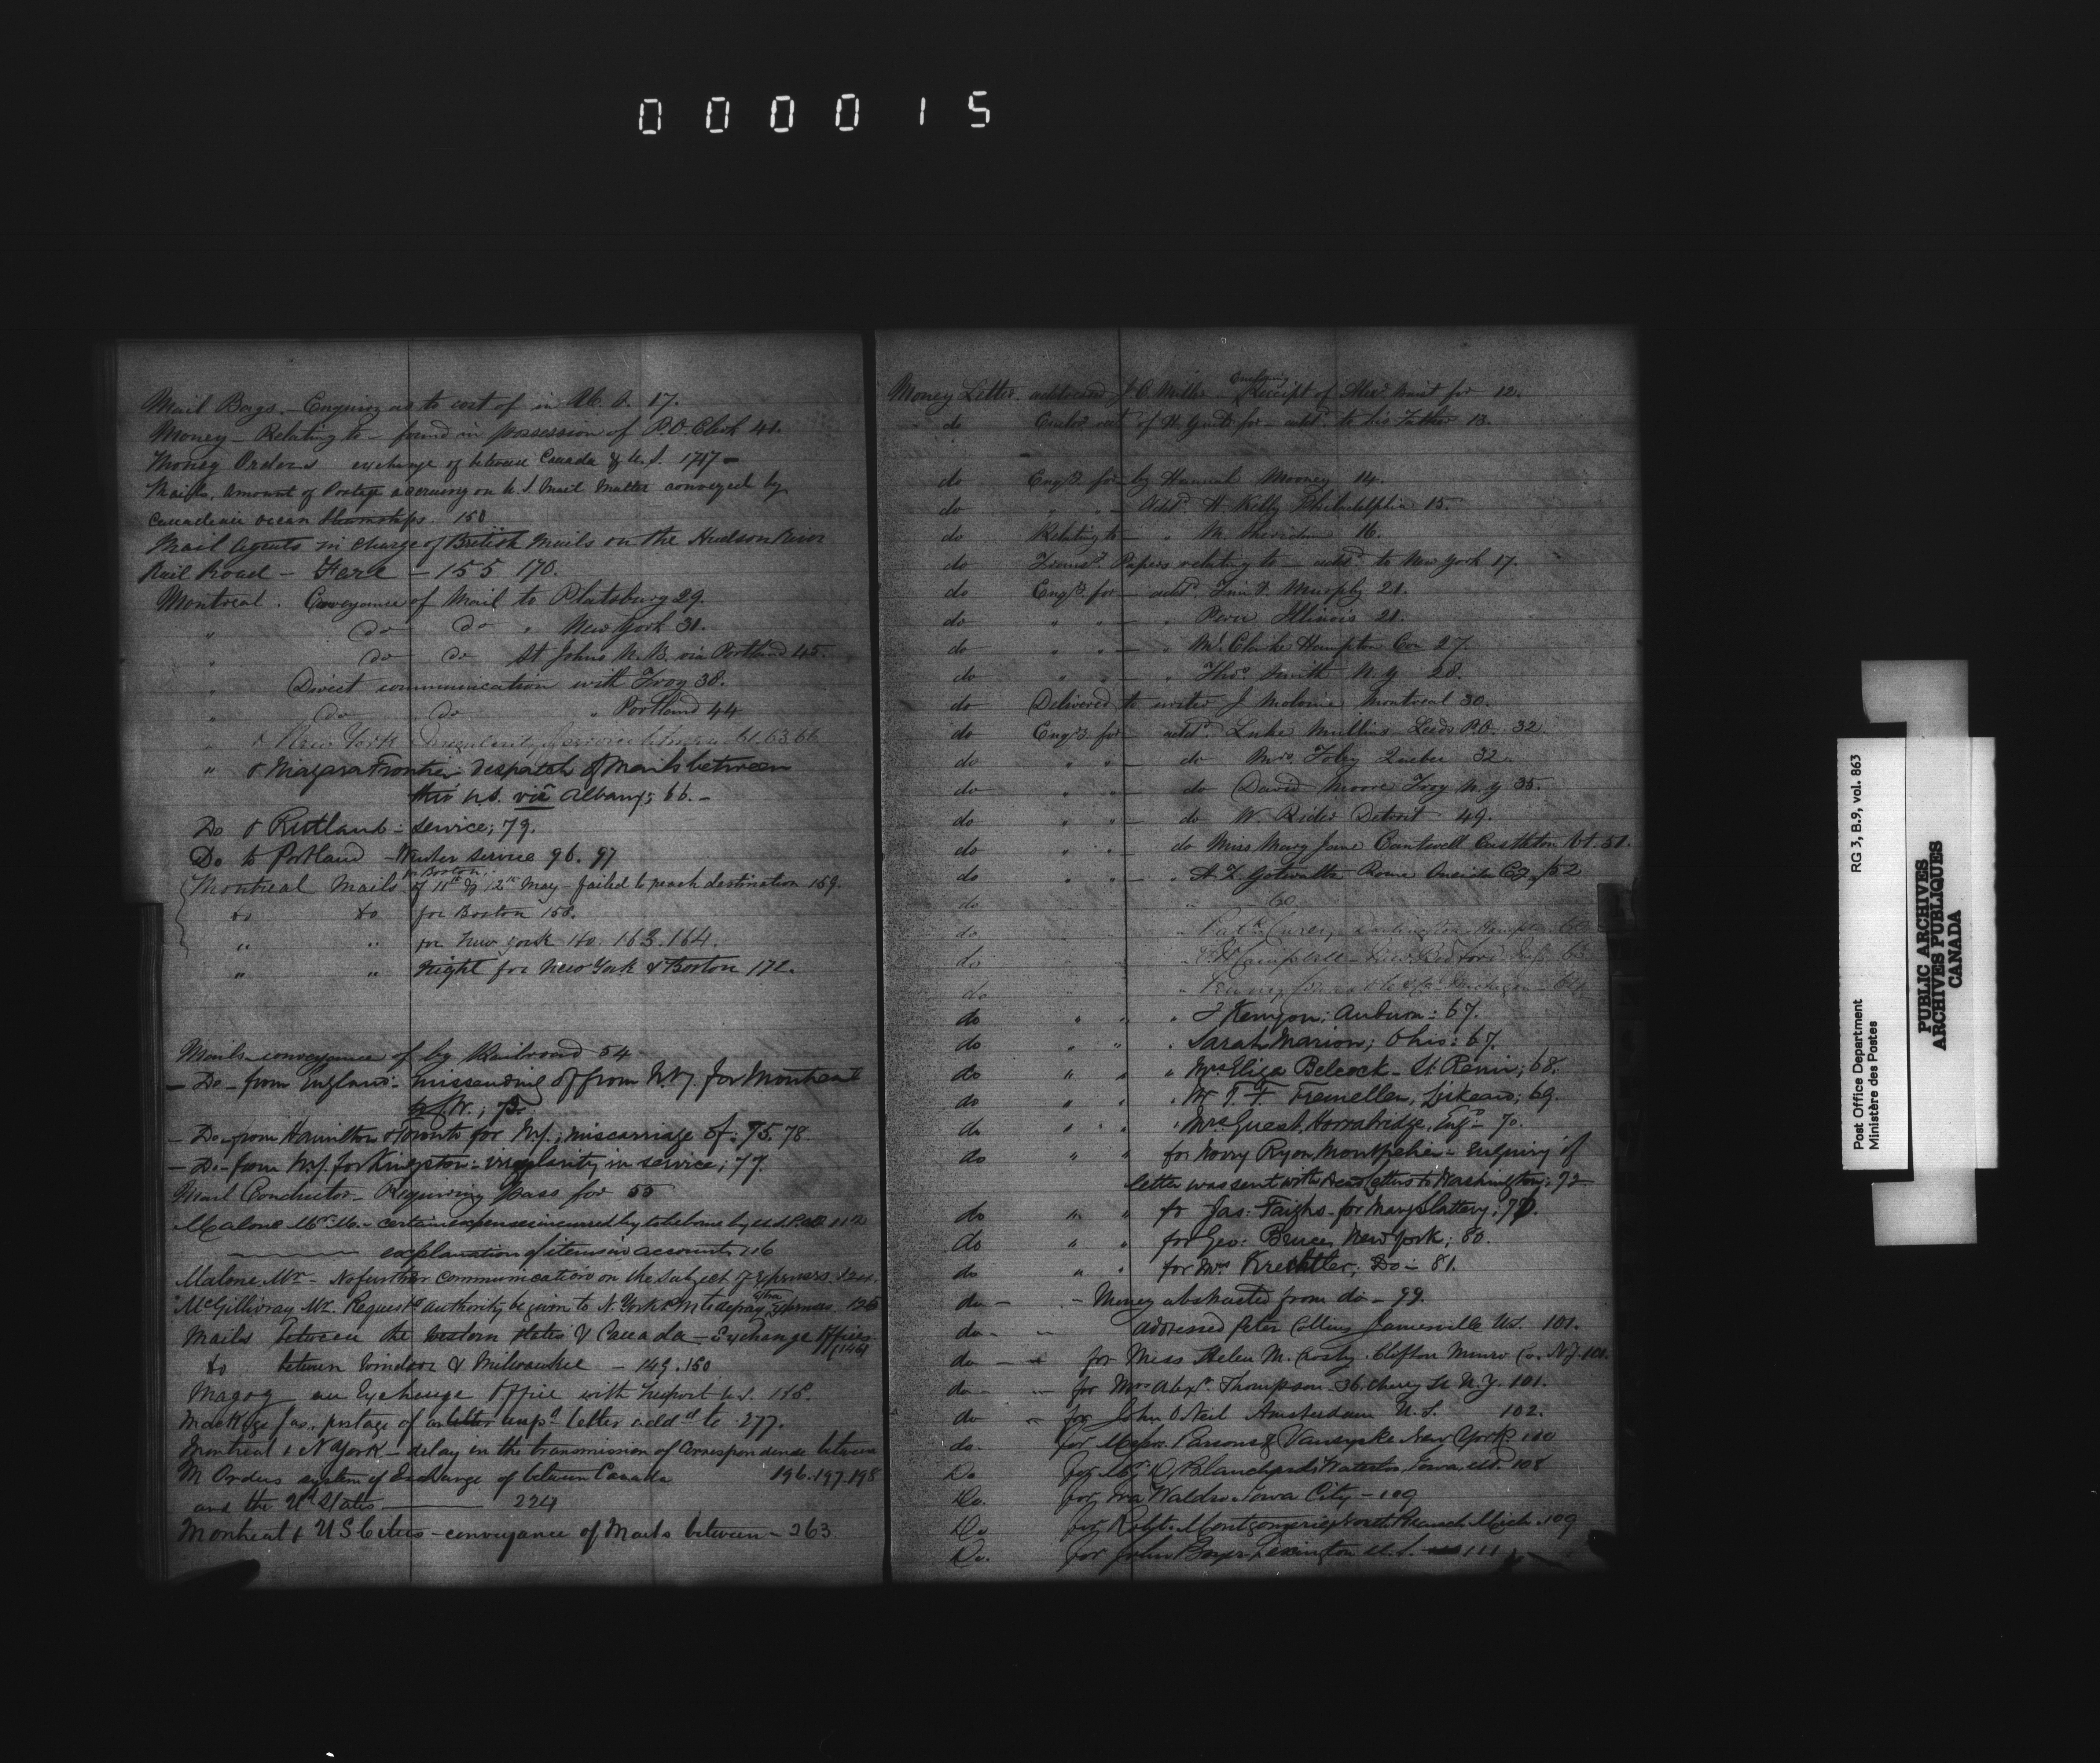 000015
Mail Bags - Enquiry as to cost of in U. S. 17.
Money - Relating to - found in possession of P.O. Clerk 41.
Money Orders exchange of between Canada & U.S. 1717 -
Mails, Amount of Postage accruing on U S Mail Matter conveyed by
Canadian ocean Steamships. 150
Mail Agents in charge of British Mails on the Hudson River
Rail Road - Fare - 155 170.
Montreal. Conveyance of Mail to Platsburg 29.
" do do " New York 31.
" do do St Johns N. B. via Portland 45.
" Direct communication with Troy 38.
" do do " Portland 44
" & New York 61. 63 66
" & Niagara Frontier despatch of Mails between
thro' U.S. via Albany; 66. -
Do & Rutland - service; 79.
Do to Portland - Winter service 96. 97
Montreal Mails for Boston of 11th & 12th May - failed to reach destination 159.
do do for Boston 158.
" " for New York 163. 164.
" " Night for New York & Boston 172.
Mails - conveyance of by Railroad 54
- Do - from England - missending of from N.Y. for Montreal
- Do - from Hamilton & Toronto for N.Y.; miscarriage of; 75. 78.
- Do - from N.Y. for Kingston: irregularity in service; 77.
Mail Conductor - Requiring pass for 55
Malone Mr. - certain expenses incurred by to be borne by
explanation of items in account
Malone, Mr - No further communication on the subject of Expenses. 124.
McGillivray Mr. Requests authority be given to N. York P.M. to defray extra Expenses. 126
Mails between the Western States & Canada - Exchange Offices (146)
do between Windsor & Milwaukee - 149. 150
Magog an Exchange Office with Newport U.S.
postage of letter add'd to 277.
Montreal & N York - delay in the transmission of Correspondence between
196. 197. 198
M Orders system of Exchange of between Canada
and the Ud States 224
Montreal & U S Cities - conveyance of Mails between - 263.
Money Letter addressed J. C. Miller enclosing Receipt of for 12.
do of H. for - add'd to his Father 13.
do Enq'd for - by Hannah Mooney 14.
do " " - Add'd H. Kelly Philadelphia 15.
do Relating to - " M. Sheridan 16.
do Papers relating to - add'd to New York 17.
do Enq'd for - add'd Murphy 21.
do " " - " Peru Illinois 21.
do " " - " Clarke Hampton 27.
do " " - " Thos Smith N. Y 28.
do Delivered to writer J Montreal 30.
do Enq'd for - add'd Luke Mullins Leeds P.O. 32.
do " " - do Mrs Foley Quebec 32.
do " " do David Moore Troy N. Y 35.
do " " - do W. Rider Detroit 49.
do " " - do Miss Mary Jane Cantwell Castleton Vt. 51.
do " " - " Rome Oneida Co. 52
do " 60
do
do
do
do " " " Kenyon; Auburn: 67.
do " " " Sarah Marion; Ohio: 67.
do " " " Mrs Eliza Belcock - St. Remi; 68.
do " " " Liskeard; 69.
do " " " Mrs Guest, Horrabridge, Eng'd - 70.
do " " for Ryon Montpelier - Enquiry if
letter was sent with Dead Letters to Washington; 72
do " " for Jas: - for Mary Slattery;
do " " for Geo: Bruce, New York; 80.
do " " for Mrs Krechtler; Do - 81.
do - - Money abstracted from do - 99.
do - - addressed Peter Collins Jamesville U.S. 101.
do - - for Miss Helen M. Crosby. Clifton Munro Co. N.Y. 101.
do - - for Mrs Alexr. Thompson - 36 Cherry St N.Y. 101.
do " for John O Neil Amsterdam U.S. 102.
do. for Messrs. Parsons & New York
Do. for Blanchard, Iowa, US. 108
Do. for Ira Waldro - Iowa City - 109
Do for Robt. Montgomerie North Branch Mich. 109
Do. for John Lexington U.S. 111
Post Office Department
Ministère des Postes
RG 3, B.9, vol. 863
PUBLIC ARCHIVES
ARCHIVES PUBLIQUES
CANADA